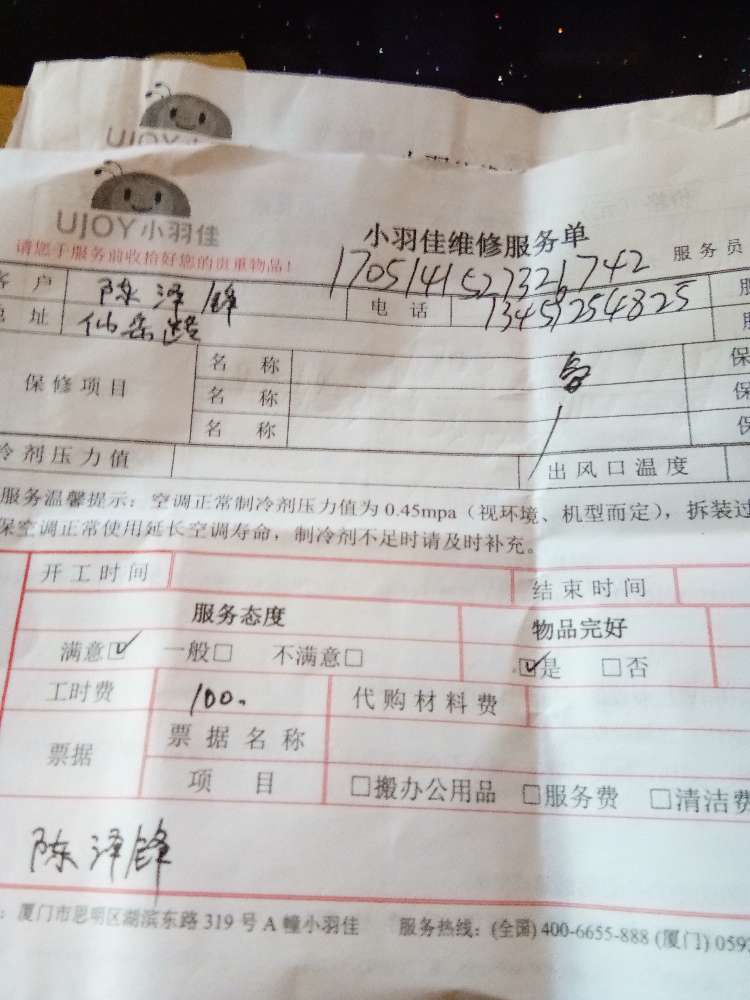 UJOY小羽佳
小羽佳维修服务单
请您于服务前收拾好您的贵重物品！
服务员
1705141527326742
客户 陈泽锋 电话 13459254825
地址 仙岳路
保修项目
名称
名称
名称
冷剂压力值 出风口温度
服务温馨提示：空调正常制冷剂压力值为 0.45mpa（视环境、机型而定），拆装过
保空调正常使用延长空调寿命，制冷剂不足时请及时补充。
开工时间 结束时间
服务态度 物品完好
满意☑ 一般□ 不满意□ ☑是 □否
工时费 100. 代购材料费
票据 票据名称
项目 □搬办公用品 □服务费 □清洁费
陈泽锋
：厦门市思明区湖滨东路 319 号 A 幢小羽佳 服务热线：(全国) 400-6655-888 (厦门) 0592